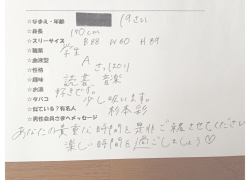 ☆なまえ・年齢 19さい
☆身長 cm
☆スリーサイズ B88 W60 H89
☆職業 学生
☆血液型 A
☆性格 さっぱり
☆趣味 読書 音楽
☆お酒 好きです。
☆タバコ 少し吸います。
☆似ている?有名人 杉本彩
☆男性会員さまへメッセージ
あなたの貴重な時間を是非ご一緒させてください
楽しい時間を過ごしましょう♡